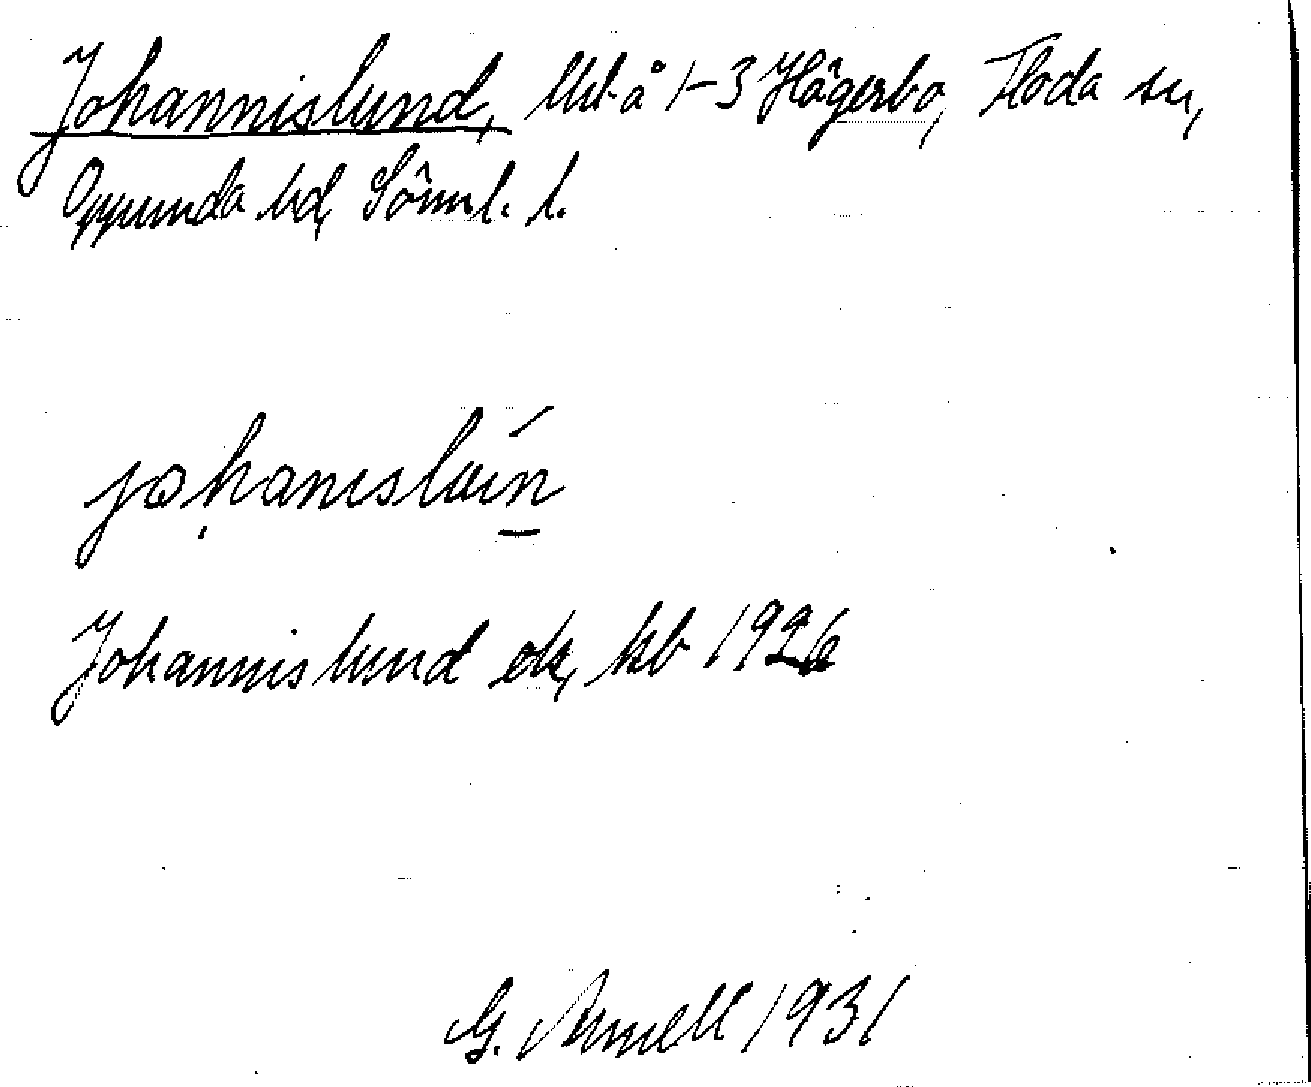 Johannislund, Utb å 1-3 Hägerbo, Floda sn,
Oppunda hd, Sörml. l.
johaneslun
Johannislund ek, kb 1926
G. Arnell 1931